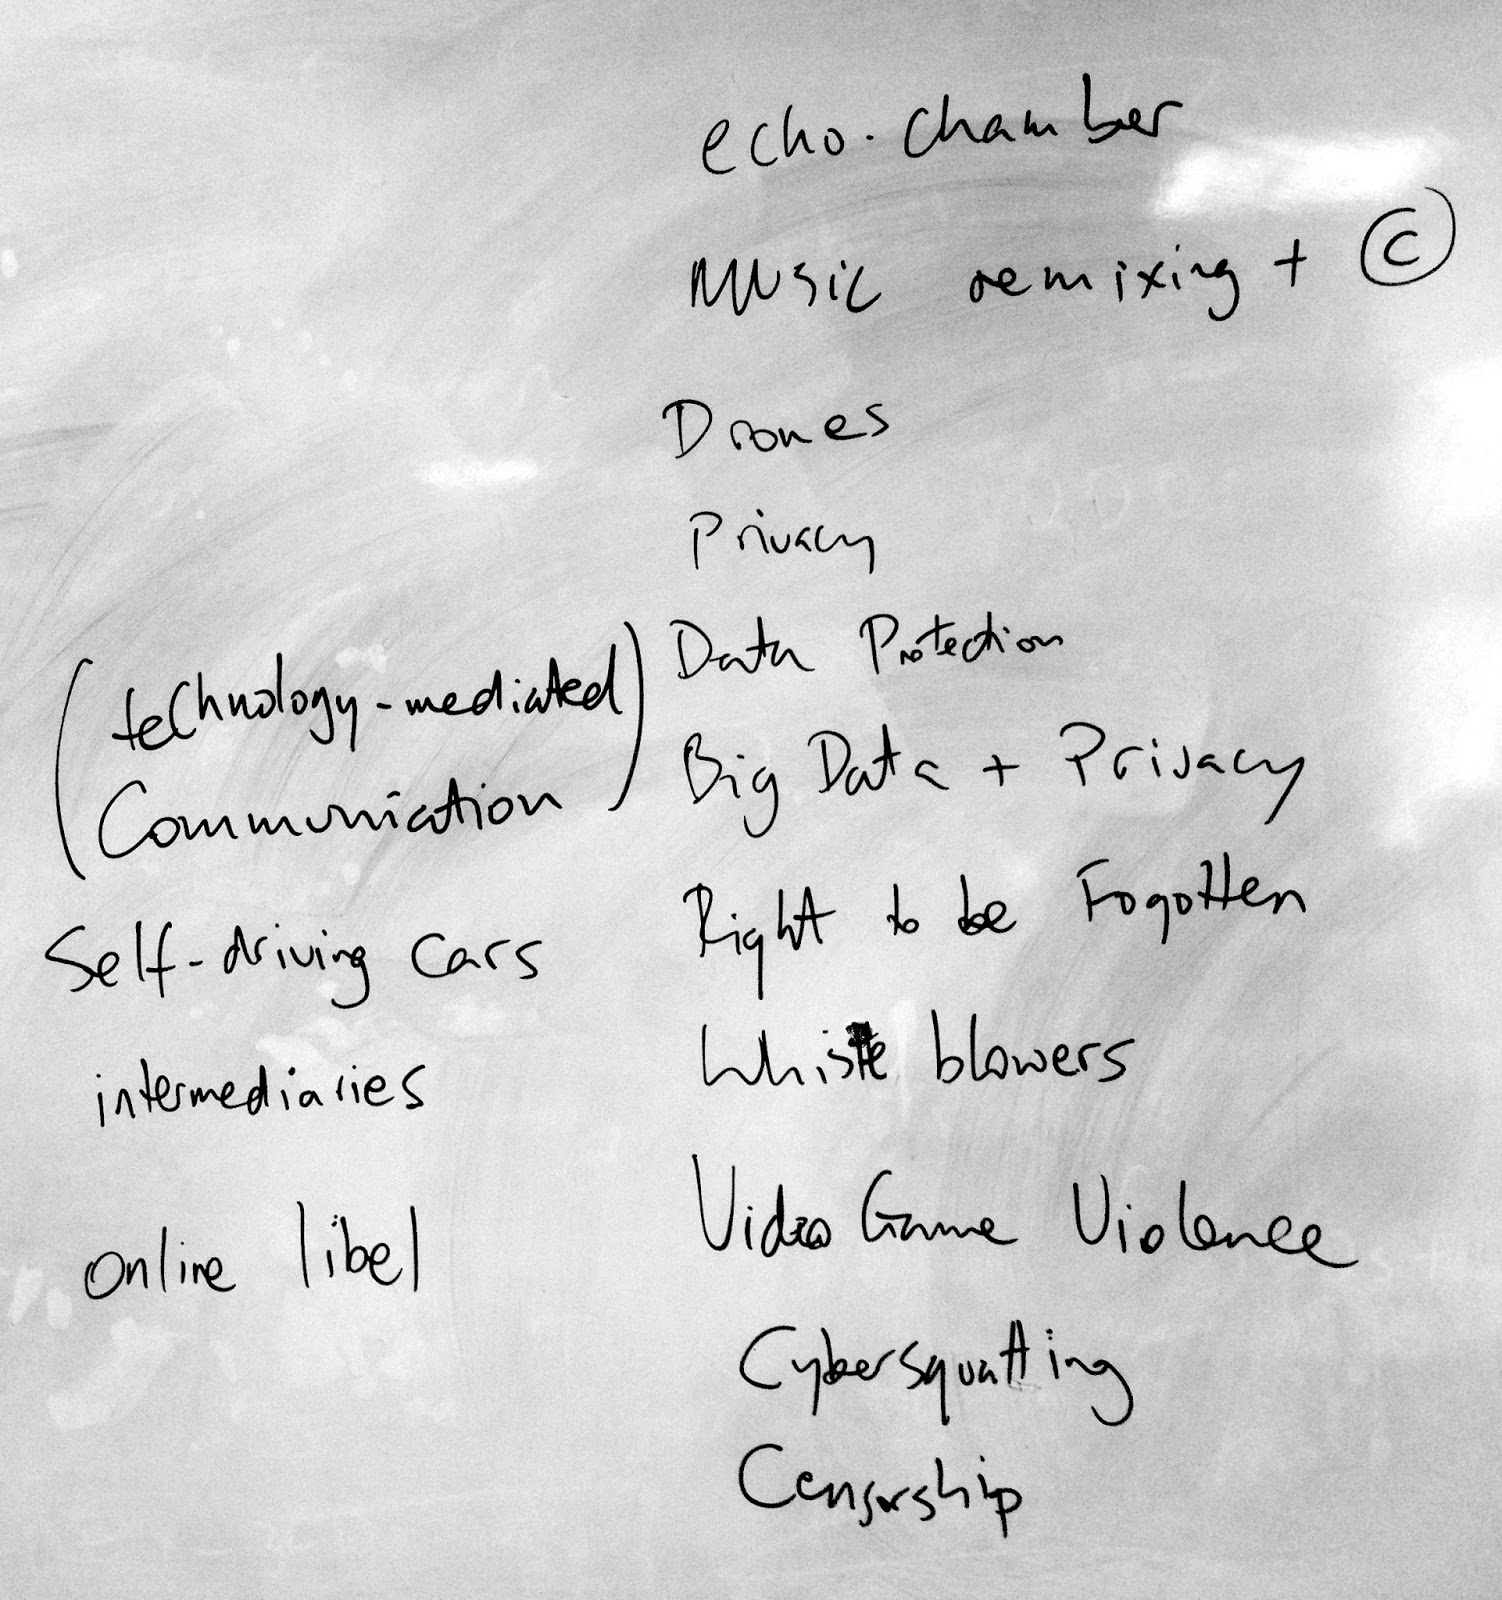 echo-chamber
Music remixing + ©
Drones
Privacy
Data Protection
Big Data + Privacy
Right to be Fogotten
Whistle blowers
Video Game Violence
Cybersquatting
Censorship
(technology-mediated
Communication)
Self-driving cars
intermediaries
online libel